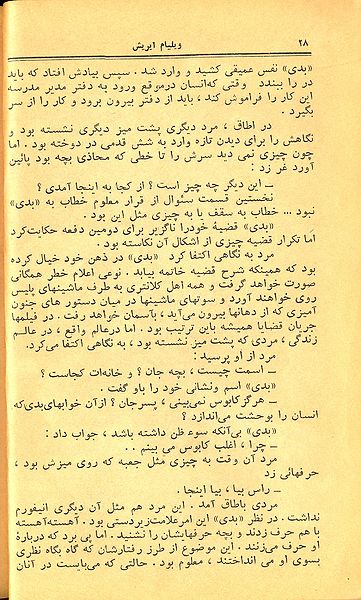 ۲۸ ویلیام ایریش
«بدی» نفس عمیقی کشید و وارد شد . سپس بیادش افتاد که باید
در را ببندد وقتی که انسان درموقع ورود به دفتر مدیر مدرسه
این کار را فراموش کند ، باید از دفتر بیرون برود و کار را از سر
بگیرد .
در اطاق ، مرد دیگری پشت میز دیگری نشسته بود و
نگاهش را برای دیدن تازه وارد به شش قدمی در دوخته بود . اما
چون چیزی نمی دید سرش را تا خطی که محاذی بچه بود پائین
آورد غر زد :
ــ این دیگر چه چیز است ؟ از کجا به اینجا آمدی ؟
نخستین قسمت سئوال از قرار معلوم خطاب به «بدی»
نبود ... خطاب به سقف یا به چیزی مثل این بود .
«بدی» قضیهٔ خودرا ناگزیر برای دومین دفعه حکایت کرد
اما تکرار قضیه چیزی از اشکال آن نکاسته بود .
مرد به نگاهی اکتفا کرد «بدی» در ذهن خود خیال کرده
بود که همینکه شرح قضیه خاتمه بیابد . نوعی اعلام خطر همگانی
صورت خواهد گرفت و همه اهل کلانتری به طرف ماشینهای پلیس
روی خواهند آورد و سوتهای ماشینها در میان دستور های جنون
آمیزی که از دهانها بیرون می‌آید ، بآسمان خواهد رفت . در فیلمها
جریان قضایا همیشه باین ترتیب بود . اما درعالم واقع ، در عالم
زندگی ، مردی که پشت میز نشسته بود ، به نگاهی اکتفا می‌کرد.
مرد از او پرسید :
ــ اسمت چیست ، بچه جان ؟ و خانه‌ات کجاست ؟
«بدی» اسم ونشانی خود را باو گفت .
ــ هرگز کابوس نمی‌بینی ، پسرجان ؟ ازآن خوابهای بدی که
انسان را بوحشت می‌اندازد ؟
«بدی» بی‌آنکه سوء ظن داشته باشد ، جواب داد :
ــ چرا ، اغلب کابوس می بینم . .
مرد آن وقت به چیزی مثل جعبه که روی میزش بود ،
حرفهائی زد
ــ راس بیا ، بیا اینجا .
مردی باطاق آمد . این مرد هم مثل آن دیگری انیفورم
نداشت . در نظر «بدی» این امر علامت زبردستی بود . آهسته‌آهسته
با هم حرف زدند و بچه حرفهایشان را نشنید . اما پی برد که دربارهٔ
او حرف می‌زنند . این موضوع از طرز رفتارشان که گاه بگاه نظری
بسوی او می انداختند ، معلوم بود . حالتی که می‌بایست در آنان